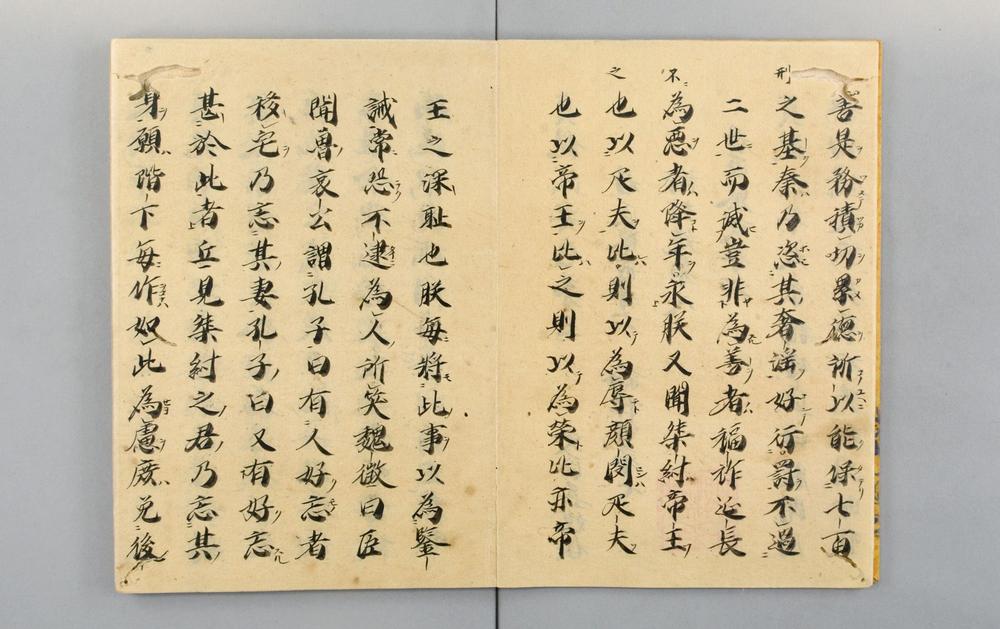 善是務積功累德所以能保七百
之基秦乃恣其奢滛好行罸不過
刑
二世而滅豈非為善者福祚延長
為惡者降年永朕又聞桀紂帝王
不
也以疋夫比則以為辱顔閔疋夫
之
也以帝王比之則以為榮此亦帝
王之深耻也朕每將此事以為鑒
誡常恐不逮為人所笑魏徵曰臣
聞魯哀公謂孔子曰有人好忘者
移宅乃忘其妻孔子曰又有好忘
甚於此者丘見桀紂之君乃忘其
身願階下每作如此為慮庶免後